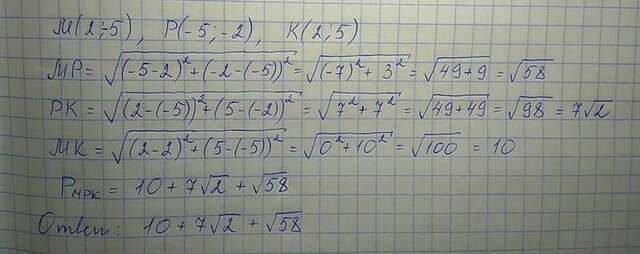 M(2;-5), P(-5;-2), K(2;5)
MP = √((-5-2)²+(-2-(-5))²) = √((-7)²+3²) = √(49+9) = √58
PK = √((2-(-5))²+(5-(-2))²) = √(7²+7²) = √(49+49) = √98 = 7√2
MK = √((2-2)²+(5-(-5))²) = √(0²+10²) = √100 = 10
P_MPK = 10 + 7√2 + √58
Ответ: 10 + 7√2 + √58